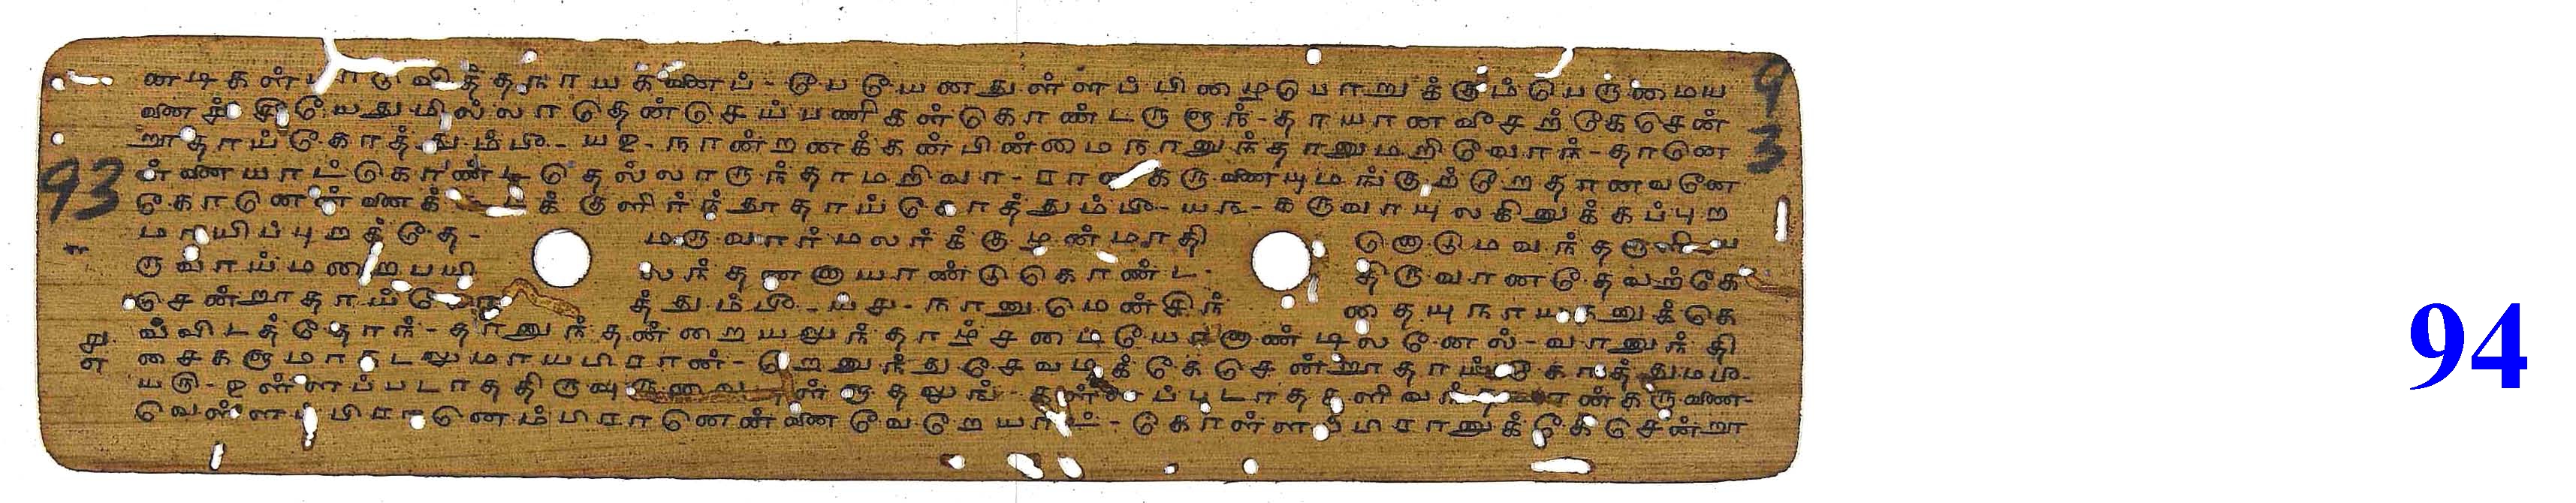 னடிகள் பாடுவித்தநாயகனைப் - பேயேயனதுள்ளப் பிழைபொறுக்கும் பெருமைய
னைச் சீயேயதுமில்லாதென்செய்பணிகள்கொண்டருளுந் - தாயானவீசற்கேசென்
றூதாய் கோத்தும்பீ - ய௨ - நான்றனக்கன்பின்மைநானுந்தானுமறிவோந் - தானெ
ன்னையாட்கொண்டதெல்லாருந்தாமறிவா - ரானகருணையுமங்குற்றேறதானவனே
கோனென்னைக் கூடக் குளிர்ந்தூதாய்கோத்தும்பீ - ய௩ - கருவாயுலகினுக்கப்புற
மாயிப்புறத்தே - மருவார்மலர்க்குழன்மாதி னொடும வந்தருளிய
ருவாய்மறைபயி லந்தணனாயாண்டுகொண்ட - திருவானதேவற்கே
சென்றூதாய்கோத் த்தும்பீ - ய௪ - நானுமென்சிந் தையுநாயகனுக்கெ
வ்விடத்தோந் - தானுந்தன்றையலுந்தாழ்சடையேயானாண்டிலனேல் - வானுந்தி
சைகளுமாகடலுமாயபிரான் - றேனுந்துசேவடிக்கேசென்றூதாய்கோத்தும்பீ -
ய௫ - உள்ளப்படாததிருவுருவை யுள்ளுதலுங் - கள்ளப்படாதகளிவந்தவான்கருணை -
வெள்ளப்பிரானெம்பிரானென்னைவேறேயாட் - கொள்ளப்பிரானுக்கேசென்றூ
93
93
94